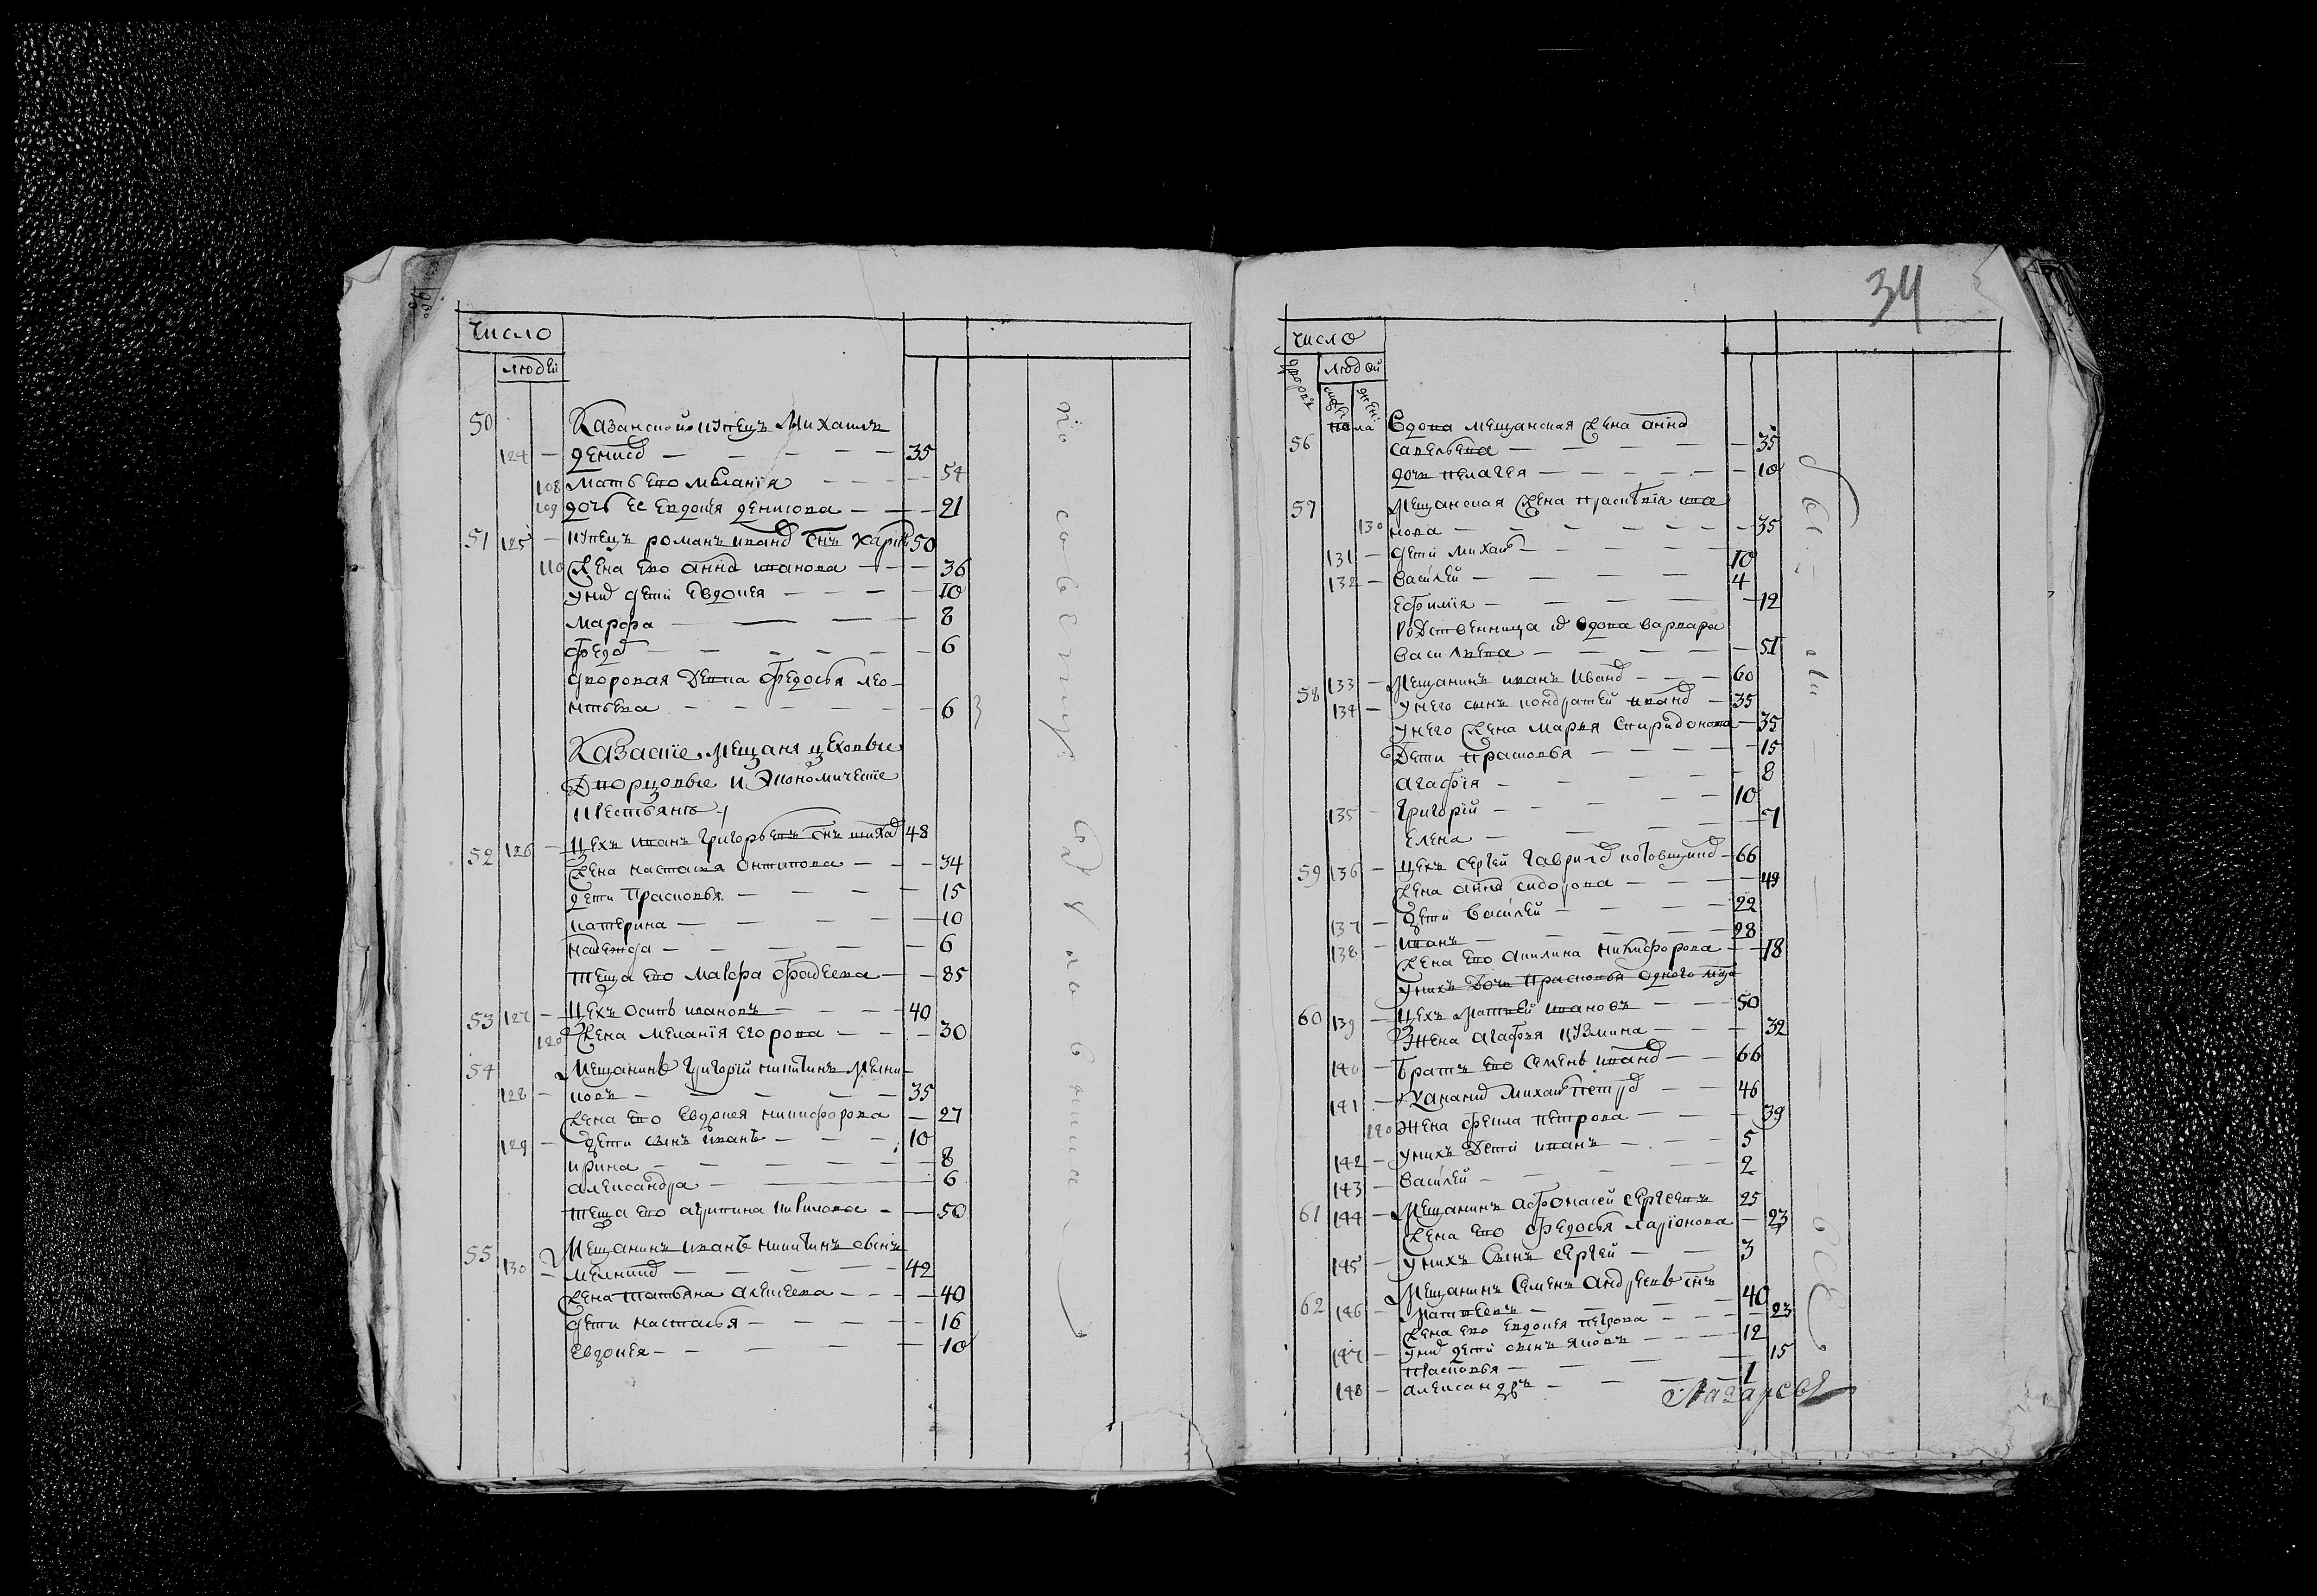 34
число
людей
50 Казанской купецъ Михаилъ
124 — Денисов — 35
108 Мать его Мелания — 54
109 дочь ее Евдокия Денисова — 21
51 125 — купецъ романъ иванов сынъ 50
110 Жена его анна иванова — 36
у них дети Евдокея — 10
Марфа — 8
6
дворовая Девка Федосья лео-
нтьева — 6
Казанские Мещаня цеховые
Дворцовые и Экономические
крестьянъ
52 126 — цехъ иванъ Григорьевъ сынъ 48
Жена настасия Онтипова — 34
дети Прасковья — 15
катерина — 10
надежда — 6
теща его Мавра Фадеева — 85
53 127 — Цехъ Осипъ ивановъ — 40
Жена Мелания Егорова — 30
54 Мещанинъ Григорий никитинъ Мелни-
128 — ковъ — 35
Жена его Евдокея никифорова — 27
129 — дети сынъ иванъ — 10
ирина — 8
александра — 6
теща его — 50
55 Мещанинъ иванъ никитинъ сынъ
130 — мелников — 42
Жена татьяна алексеева — 40
дети настасья — 16
Евдокея — 10
по совету
число
дворовъ людей
пола
Вдова мещанская Жена анна
56 савельева — 35
дочь пелагея — 10
57 Мещанская Жена прасковия ива
130 нова — 35
131 — дети михаил — 10
132 — Василей — 4
Ефимия — 12
Родственница их вдова варвара
Васильева — 51
58 133 — Мещанинъ иванъ Иванов — 60
134 — у него сынъ кондратей иванов — 35
у него Жена Марья Спиридонова — 35
Дети прасковья — 15
агафия — 8
135 — Григорий — 10
Елена — 7
59 136 — цехъ сергей Гаврилов — 66
Жена анна сидорова — 49
137 — дети Василей — 22
138 — иванъ — 28
Жена его акилина никифорова — 18
у нихъ Дочь прасковья одного
60 139 — цехъ Матвей ивановъ — 50
Жена агафья кузмина — 32
140 — Братъ его семенъ иванов — 66
141 — михаил петров — 46
120 Жена фекла петрова — 39
142 — у нихъ Дети иванъ — 5
143 — Василей — 2
61 144 — Мещанинъ афонасей сергеевъ 25
Жена его федосья ларионова — 23
145 — у нихъ Сынъ сергей — 3
Мещанинъ Семенъ андреевъ сынъ
62 146 — Матвеевъ — 40
Жена его Евдокея петрова — 23
147 — у них дети сынъ яковъ — 12
прасковья — 15
148 — александръ — 1
все
Лазаревъ